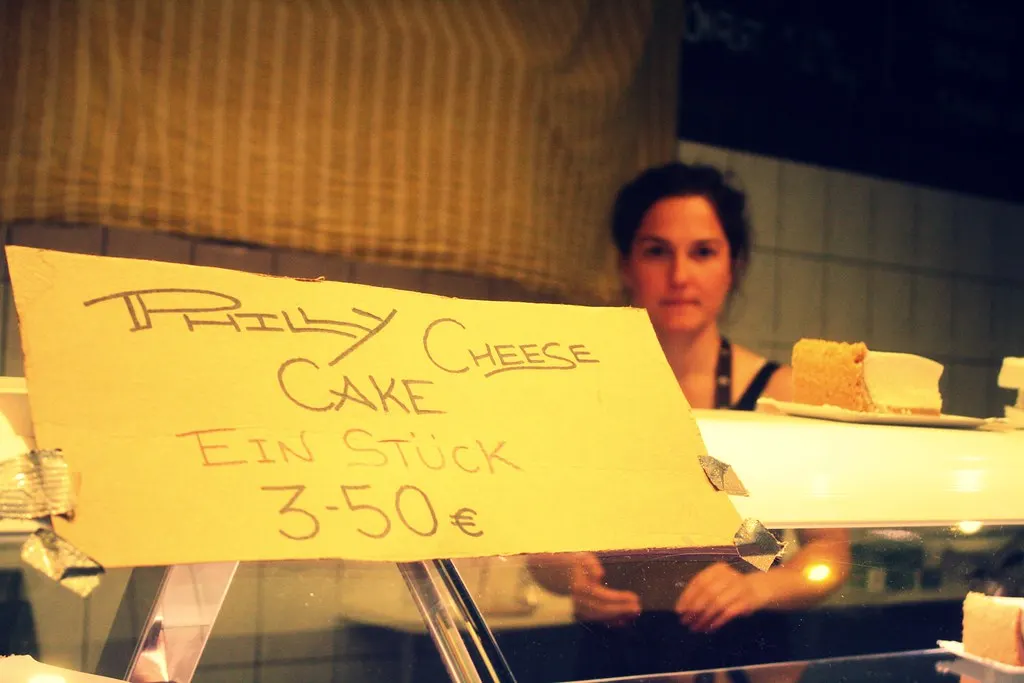 PHILLY CHEESE
CAKE
EIN STÜCK
3-50€